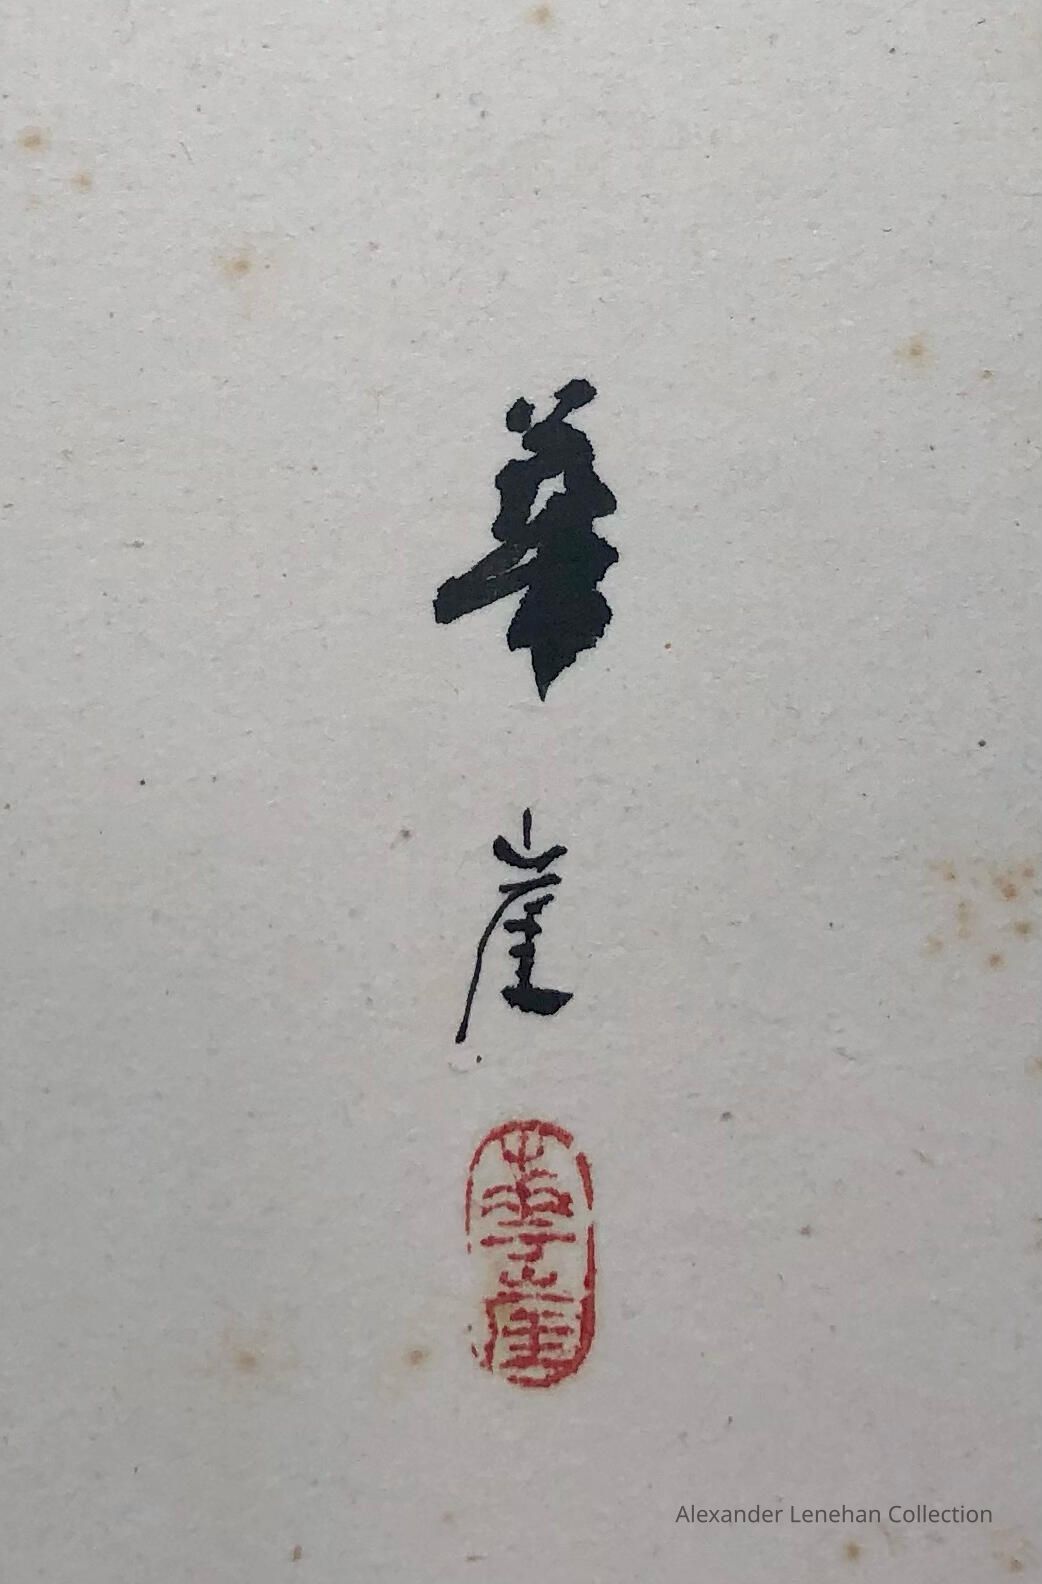 華
崖
華崖
Alexander Lenehan Collection